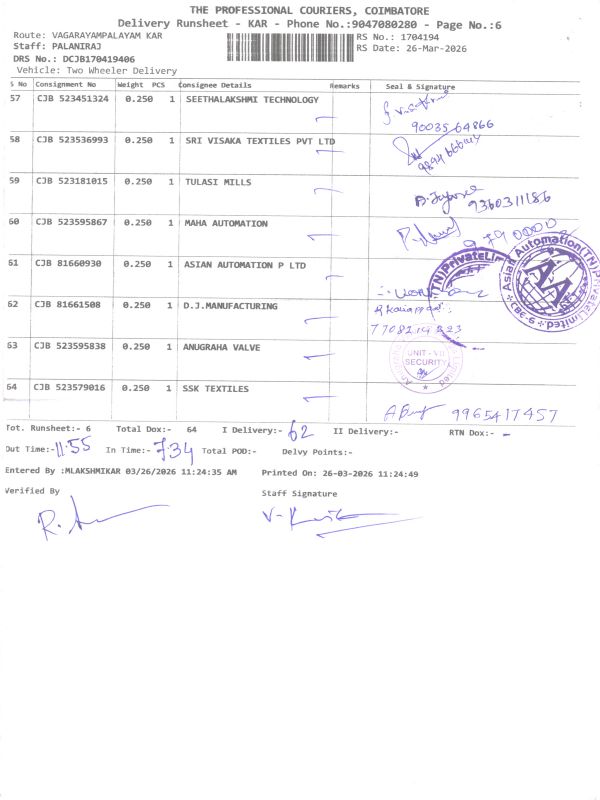 THE PROFESSIONAL COURIERS, COIMBATORE
Delivery Runsheet - KAR - Phone No.:9047080280 - Page No.:6
Route: VAGARAYAMPALAYAM KAR
RS No.: 1704194
Staff: PALANIRAJ
RS Date: 26-Mar-2026
DRS No.: DCJB170419406
Vehicle: Two Wheeler Delivery
S No Consignment No Weight PCS Consignee Details Remarks Seal & Signature
57 CJB 523451324 0.250 1 SEETHALAKSHMI TECHNOLOGY
90035 64866
58 CJB 523536993 0.250 1 SRI VISAKA TEXTILES PVT LTD
59 CJB 523181015 0.250 1 TULASI MILLS
9360311186
60 CJB 523595867 0.250 1 MAHA AUTOMATION
61 CJB 81660930 0.250 1 ASIAN AUTOMATION P LTD
(TN)Private Li
Asian Automation(TN)Private Limited
62 CJB 81661508 0.250 1 D.J.MANUFACTURING
7708214223
63 CJB 523595838 0.250 1 ANUGRAHA VALVE
UNIT - VII
SECURITY
64 CJB 523579016 0.250 1 SSK TEXTILES
9965417457
Tot. Runsheet:- 6 Total Dox:- 64 I Delivery:- 62 II Delivery:- RTN Dox:- -
Out Time:- 11.55 In Time:- 7.34 Total POD:- Delvy Points:-
Entered By :MLAKSHMIKAR 03/26/2026 11:24:35 AM Printed On: 26-03-2026 11:24:49
Verified By
Staff Signature